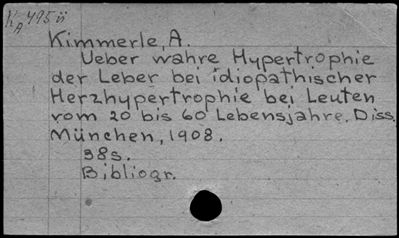 KA 495 ü
Kimmerle, A.
Ueber wahre Hypertrophie
der Leber bei idiopathischer
Herzhypertrophie bei Leuten
vom 20 bis 60 Lebensjahre. Diss.
München, 1908.
38s.
Bibliogr.